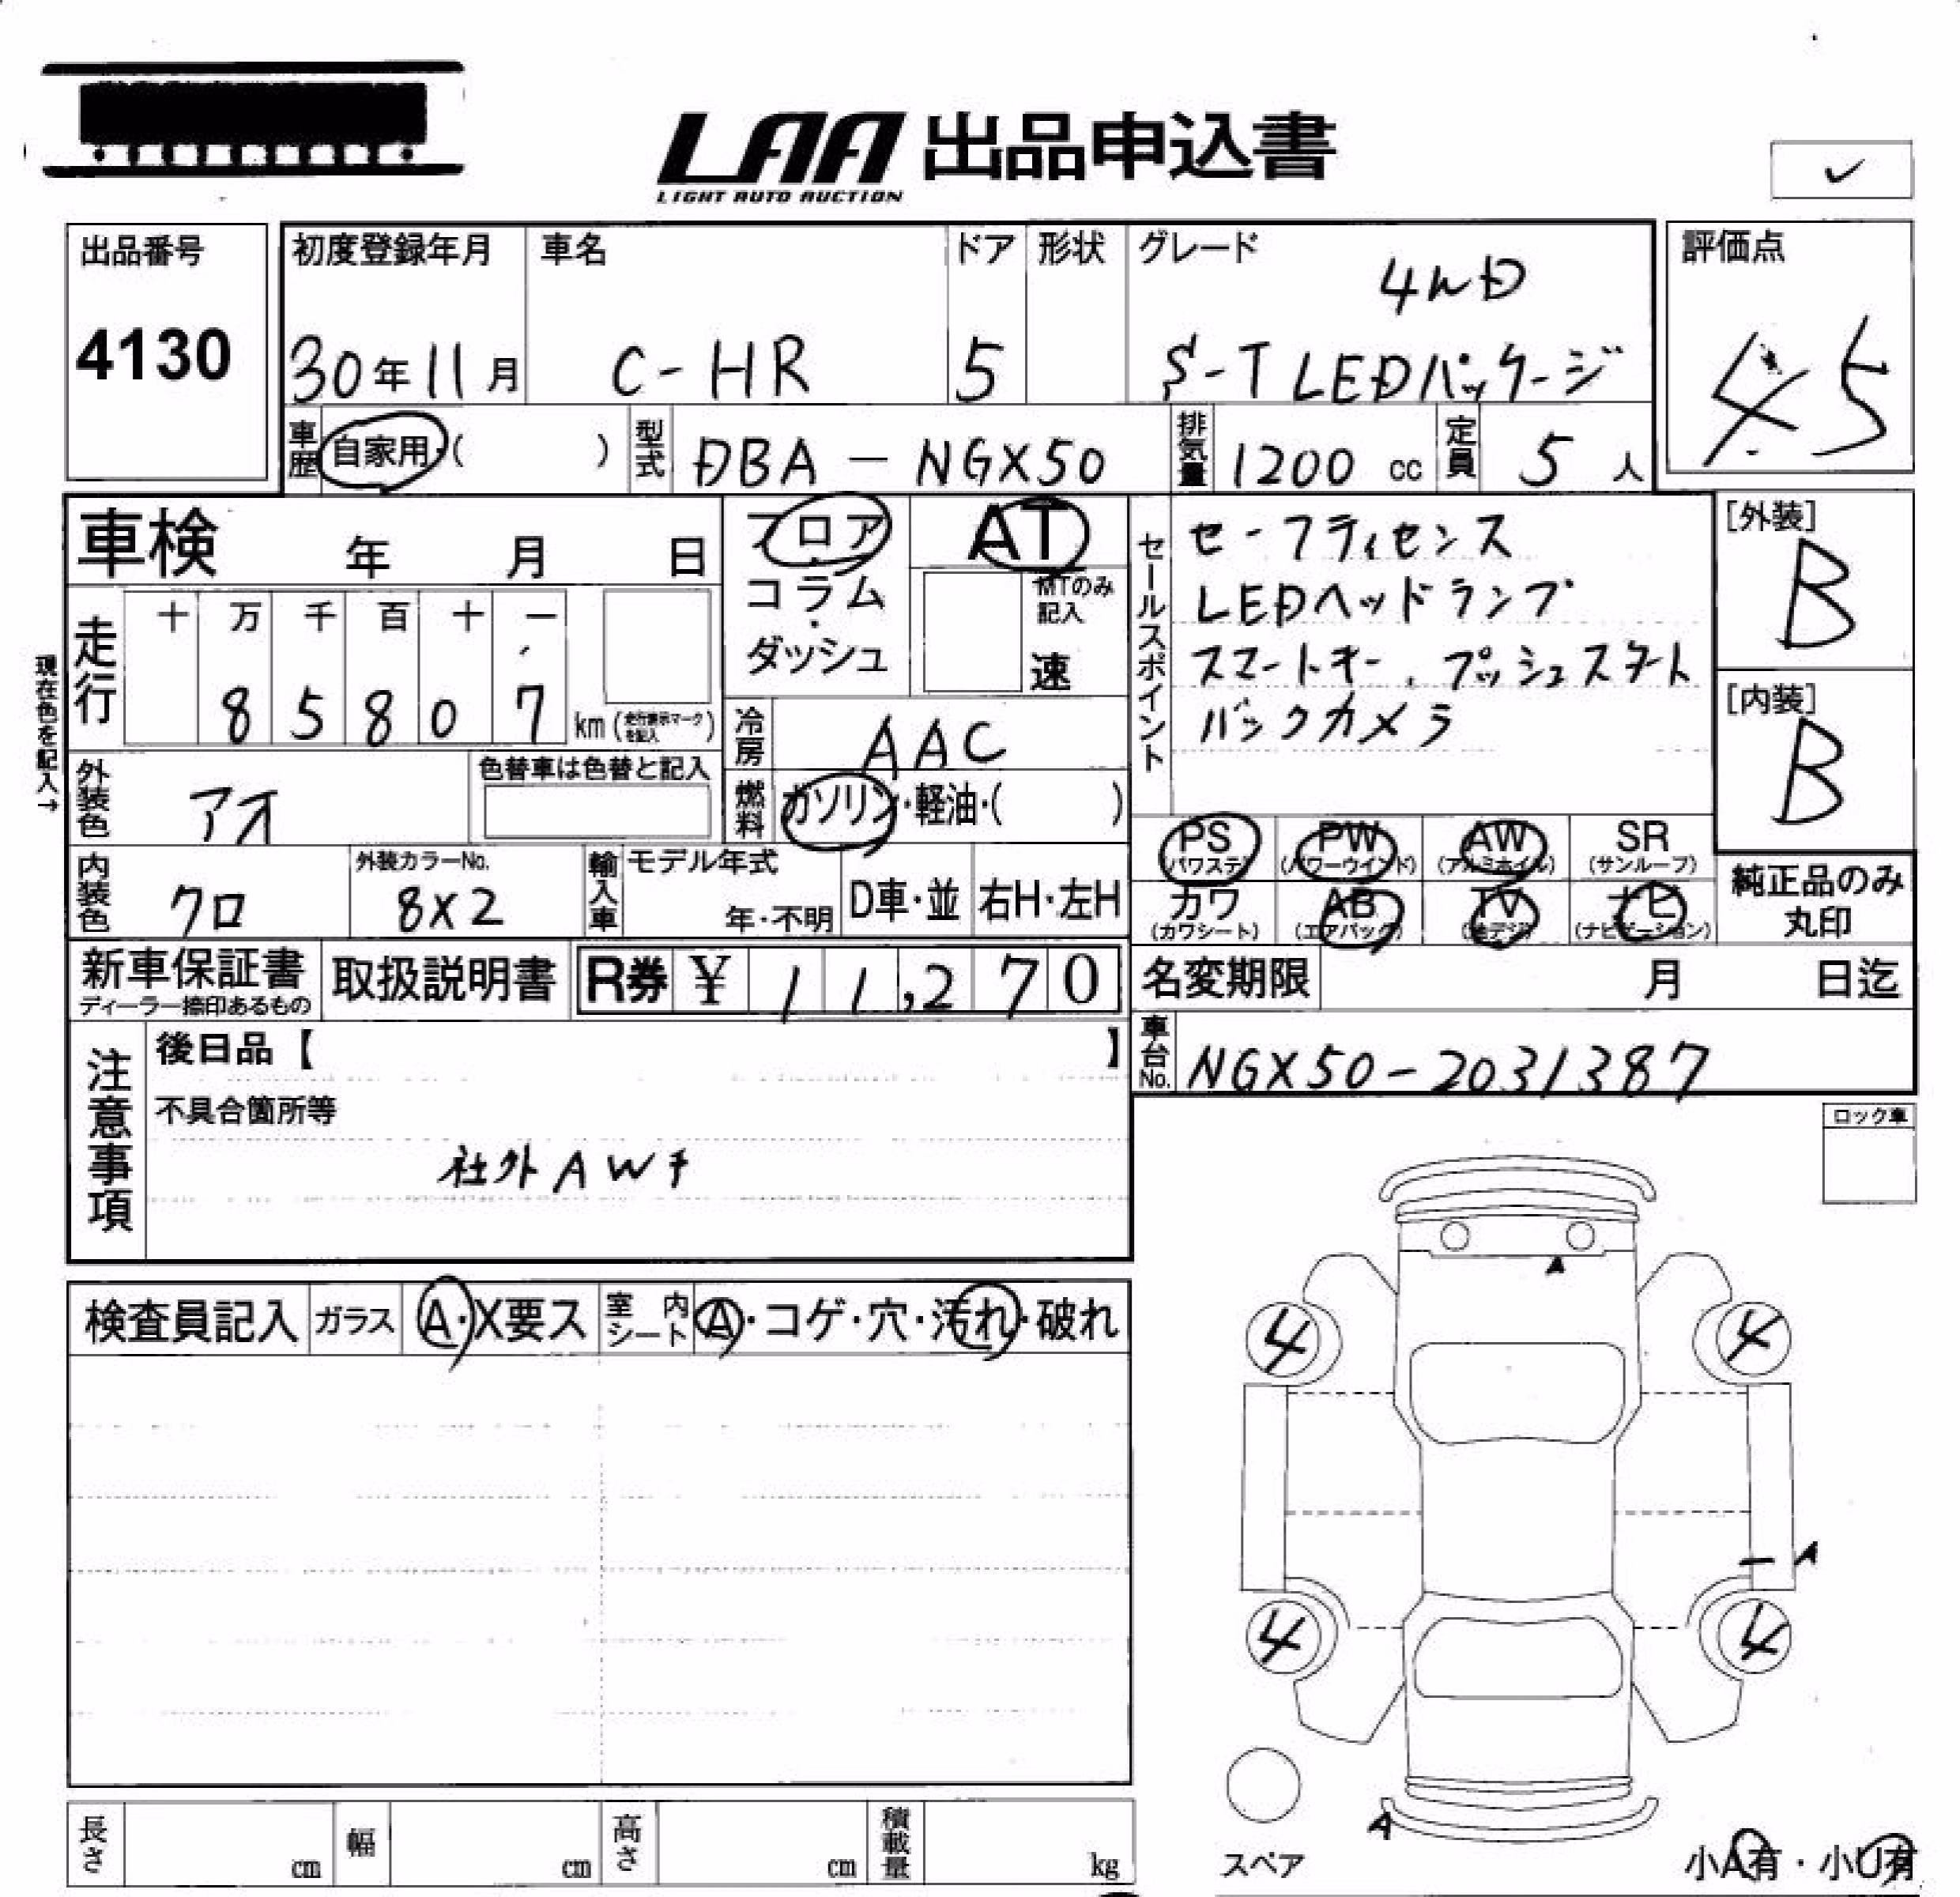 LAA 出品申込書
LIGHT AUTO AUCTION
✓
出品番号
4130
初度登録年月
30年11月
車名
C-HR
ドア
5
形状
グレード
4WD
S-T LEDパッケージ
評価点
4.5
車歴
自家用・( )
型式
DBA-NGX50
排気量
1200 cc
定員
5 人
車検 年 月 日
フロア・コラム・ダッシュ
AT
MTのみ記入
速
セールスポイント
セーフティセンス
LEDヘッドランプ
スマートキー、プッシュスタート
バックカメラ
[外装]
B
[内装]
B
現在色を記入→
走行
十 万 千 百 十 一
8 5 8 0 7 km (走行表示マークを記入)
冷房
AAC
外装色
アオ
色替車は色替と記入
燃料
ガソリン・軽油・( )
PS (パワステ)
PW (パワーウインド)
AW (アルミホイル)
SR (サンルーフ)
内装色
クロ
外装カラーNo.
8X2
輸入車
モデル年式
年・不明
D車・並
右H・左H
カワ (カワシート)
AB (エアバック)
TV (地デジ)
ナビ (ナビゲーション)
純正品のみ
丸印
新車保証書
ディーラー捺印あるもの
取扱説明書
R券 ¥ 11,270
名変期限 月 日迄
車台No.
NGX50-2031387
注意事項
後日品【 】
不具合箇所等
社外AWキ
ロック車
検査員記入
ガラス
A・X要ス
室内シート
A・コゲ・穴・汚れ・破れ
A
4 4
A
4 4
A
スペア
小A有・小U有
長さ cm
幅 cm
高さ cm
積載量 kg